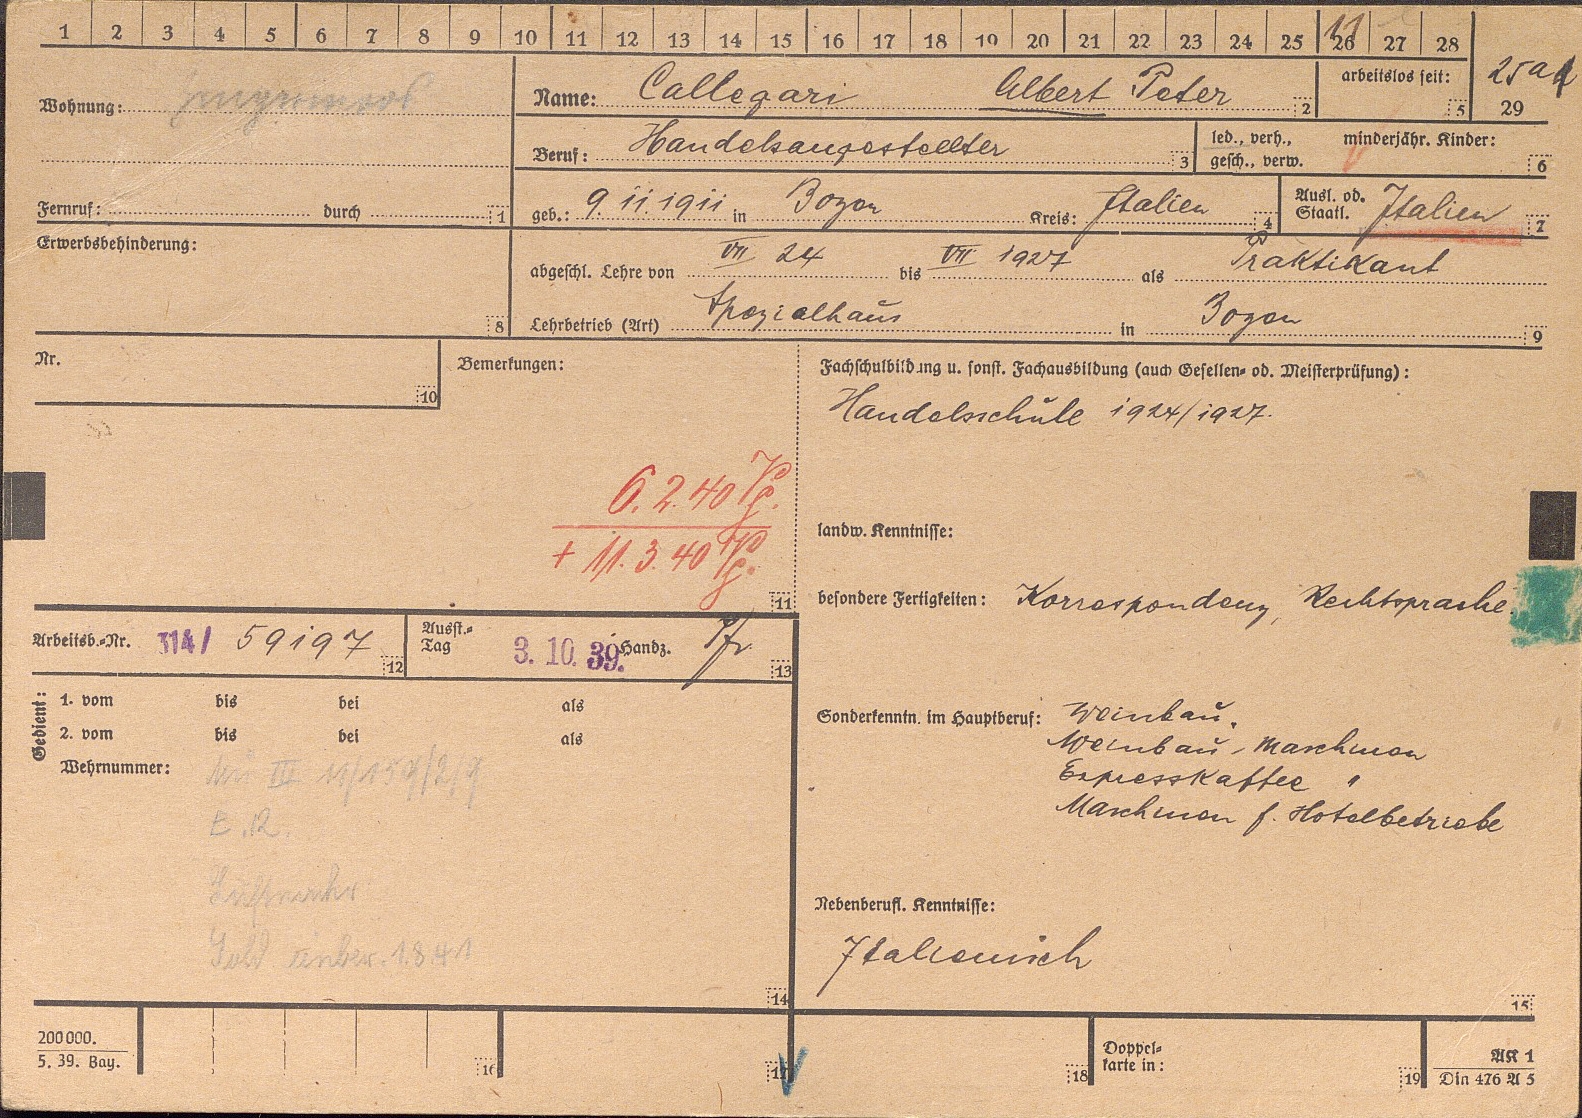 1 2 3 4 5 6 7 8 9 10 11 12 13 14 15 16 17 18 19 20 21 22 23 24 25 26 27 28
11
Wohnung:
Name: Callegari Albert Peter 2
arbeitslos seit: 5
25a
29
Beruf: Handelsangestellter 3
led., verh., gesch., verw.
minderjähr. Kinder: 6
Fernruf: durch 1
geb.: 9.11.1911 in Bozen Kreis: Italien 4
Ausl. od. Staatl. Italien 7
Erwerbsbehinderung: 8
abgeschl. Lehre von VII 24 bis VII 1927 als Praktikant
Lehrbetrieb (Art) Spezialhaus in Bozen 9
Nr. 10
Bemerkungen:
6.2.40 Pg.
+ 11.3.40 Pg.
11
Fachschulbildung u. sonst. Fachausbildung (auch Gesellen- od. Meisterprüfung):
Handelsschule 1924/1927.
landw. Kenntnisse:
besondere Fertigkeiten: Korrespondenz, Rechtsprache
Arbeitsb.-Nr. 314/ 59197 12
Ausst.-Tag 3. 10. 39. Handz. 13
Gedient:
1. vom bis bei als
2. vom bis bei als
Wehrnummer:
E.12.
Luftwaffe
1.8.41
14
Sonderkenntn. im Hauptberuf: Weinbau.
Weinbau-Maschinen
Expresskaffee "
Maschinen f. Hotelbetriebe
Nebenberufl. Kenntnisse:
Italienisch
15
200000.
5. 39. Bay.
16
17
18
Doppel-
karte in:
19
AK 1
Din 476 A 5